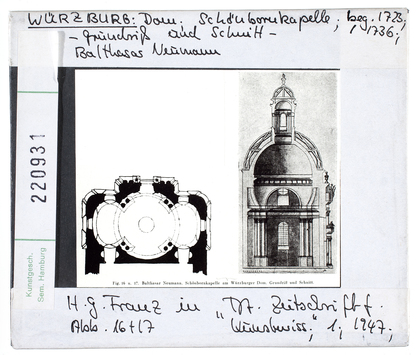 WÜRZBURG: Dom. Schönbornkapelle, beg. 1723,
1736,
- Grundriß und Schnitt -
Balthasar Neumann
220931
Kunstgesch.
Sem. Hamburg
Fig. 16 u. 17. Balthasar Neumann. Schönbornkapelle am Würzburger Dom. Grundriß und Schnitt
H. G. Franz in "Dt. Zeitschrift f.
Abb. 16+17 Kunstwiss.", 1, 1947,